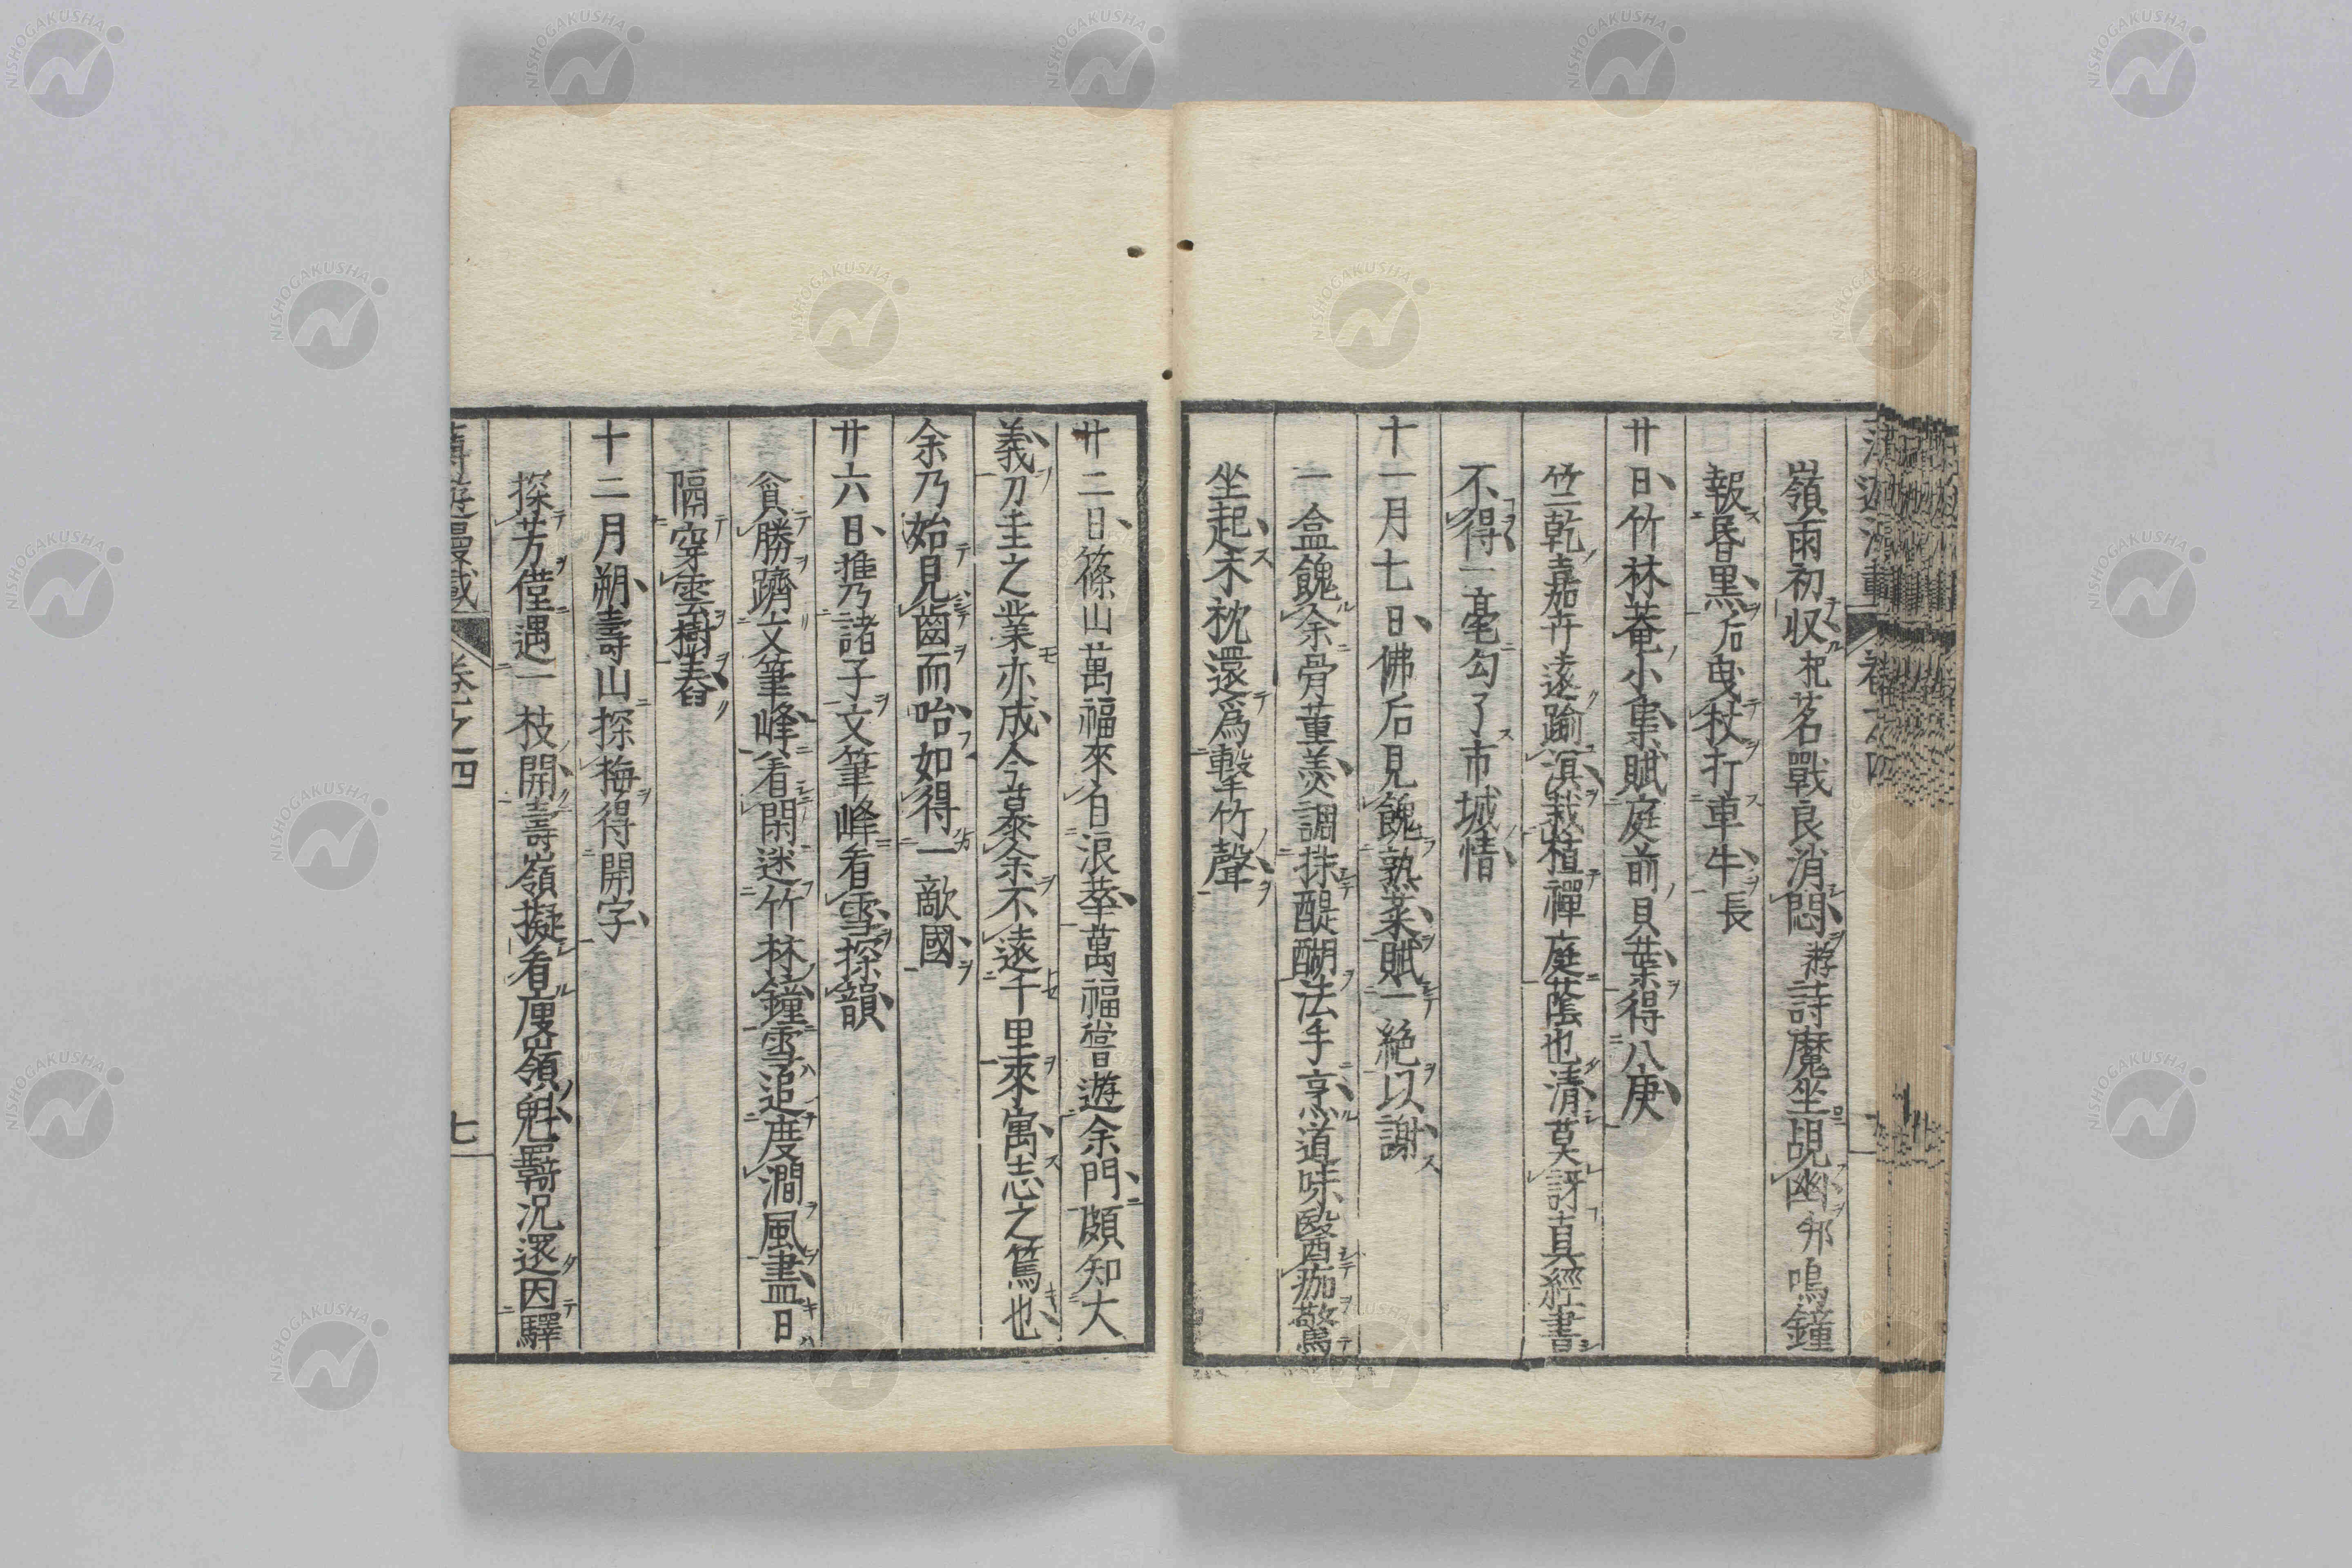 嶺雨初収杞茗戰良消悶游詩魔坐覘幽邨鳴鐘
報昏黒后曳杖打車牛長
廿日竹林菴小集賦庭前貝葉得八庚
竺乾嘉卉遠踰濵栽植禪庭蔭也清莫訝真經書
不得一毫勾了市城情
十一月七日佛后見餽熟菜賦一絶以謝
一盒餽余骨董羹調抹醍醐法手烹道味醫痂驚
坐起禾枕還爲擊竹聲
廿二日篠山萬福來自浪華萬福嘗遊余門頗知大
義刀圭之業亦成今慕余不遠千里來寓志之篤也
余乃始見齒而咍如得一敵國
廿六日携乃諸子文筆峰看雪探韻
貪勝躋攵筆峰看閑迷竹林鐘雪追度澗風晝日
隔穿雲樹舂
十二月朔壽山探梅得開字
探芳僅遇一枝開壽嶺擬看庾嶺魁羈況還因驛
卷之四
七
NISHOGAKUSHA